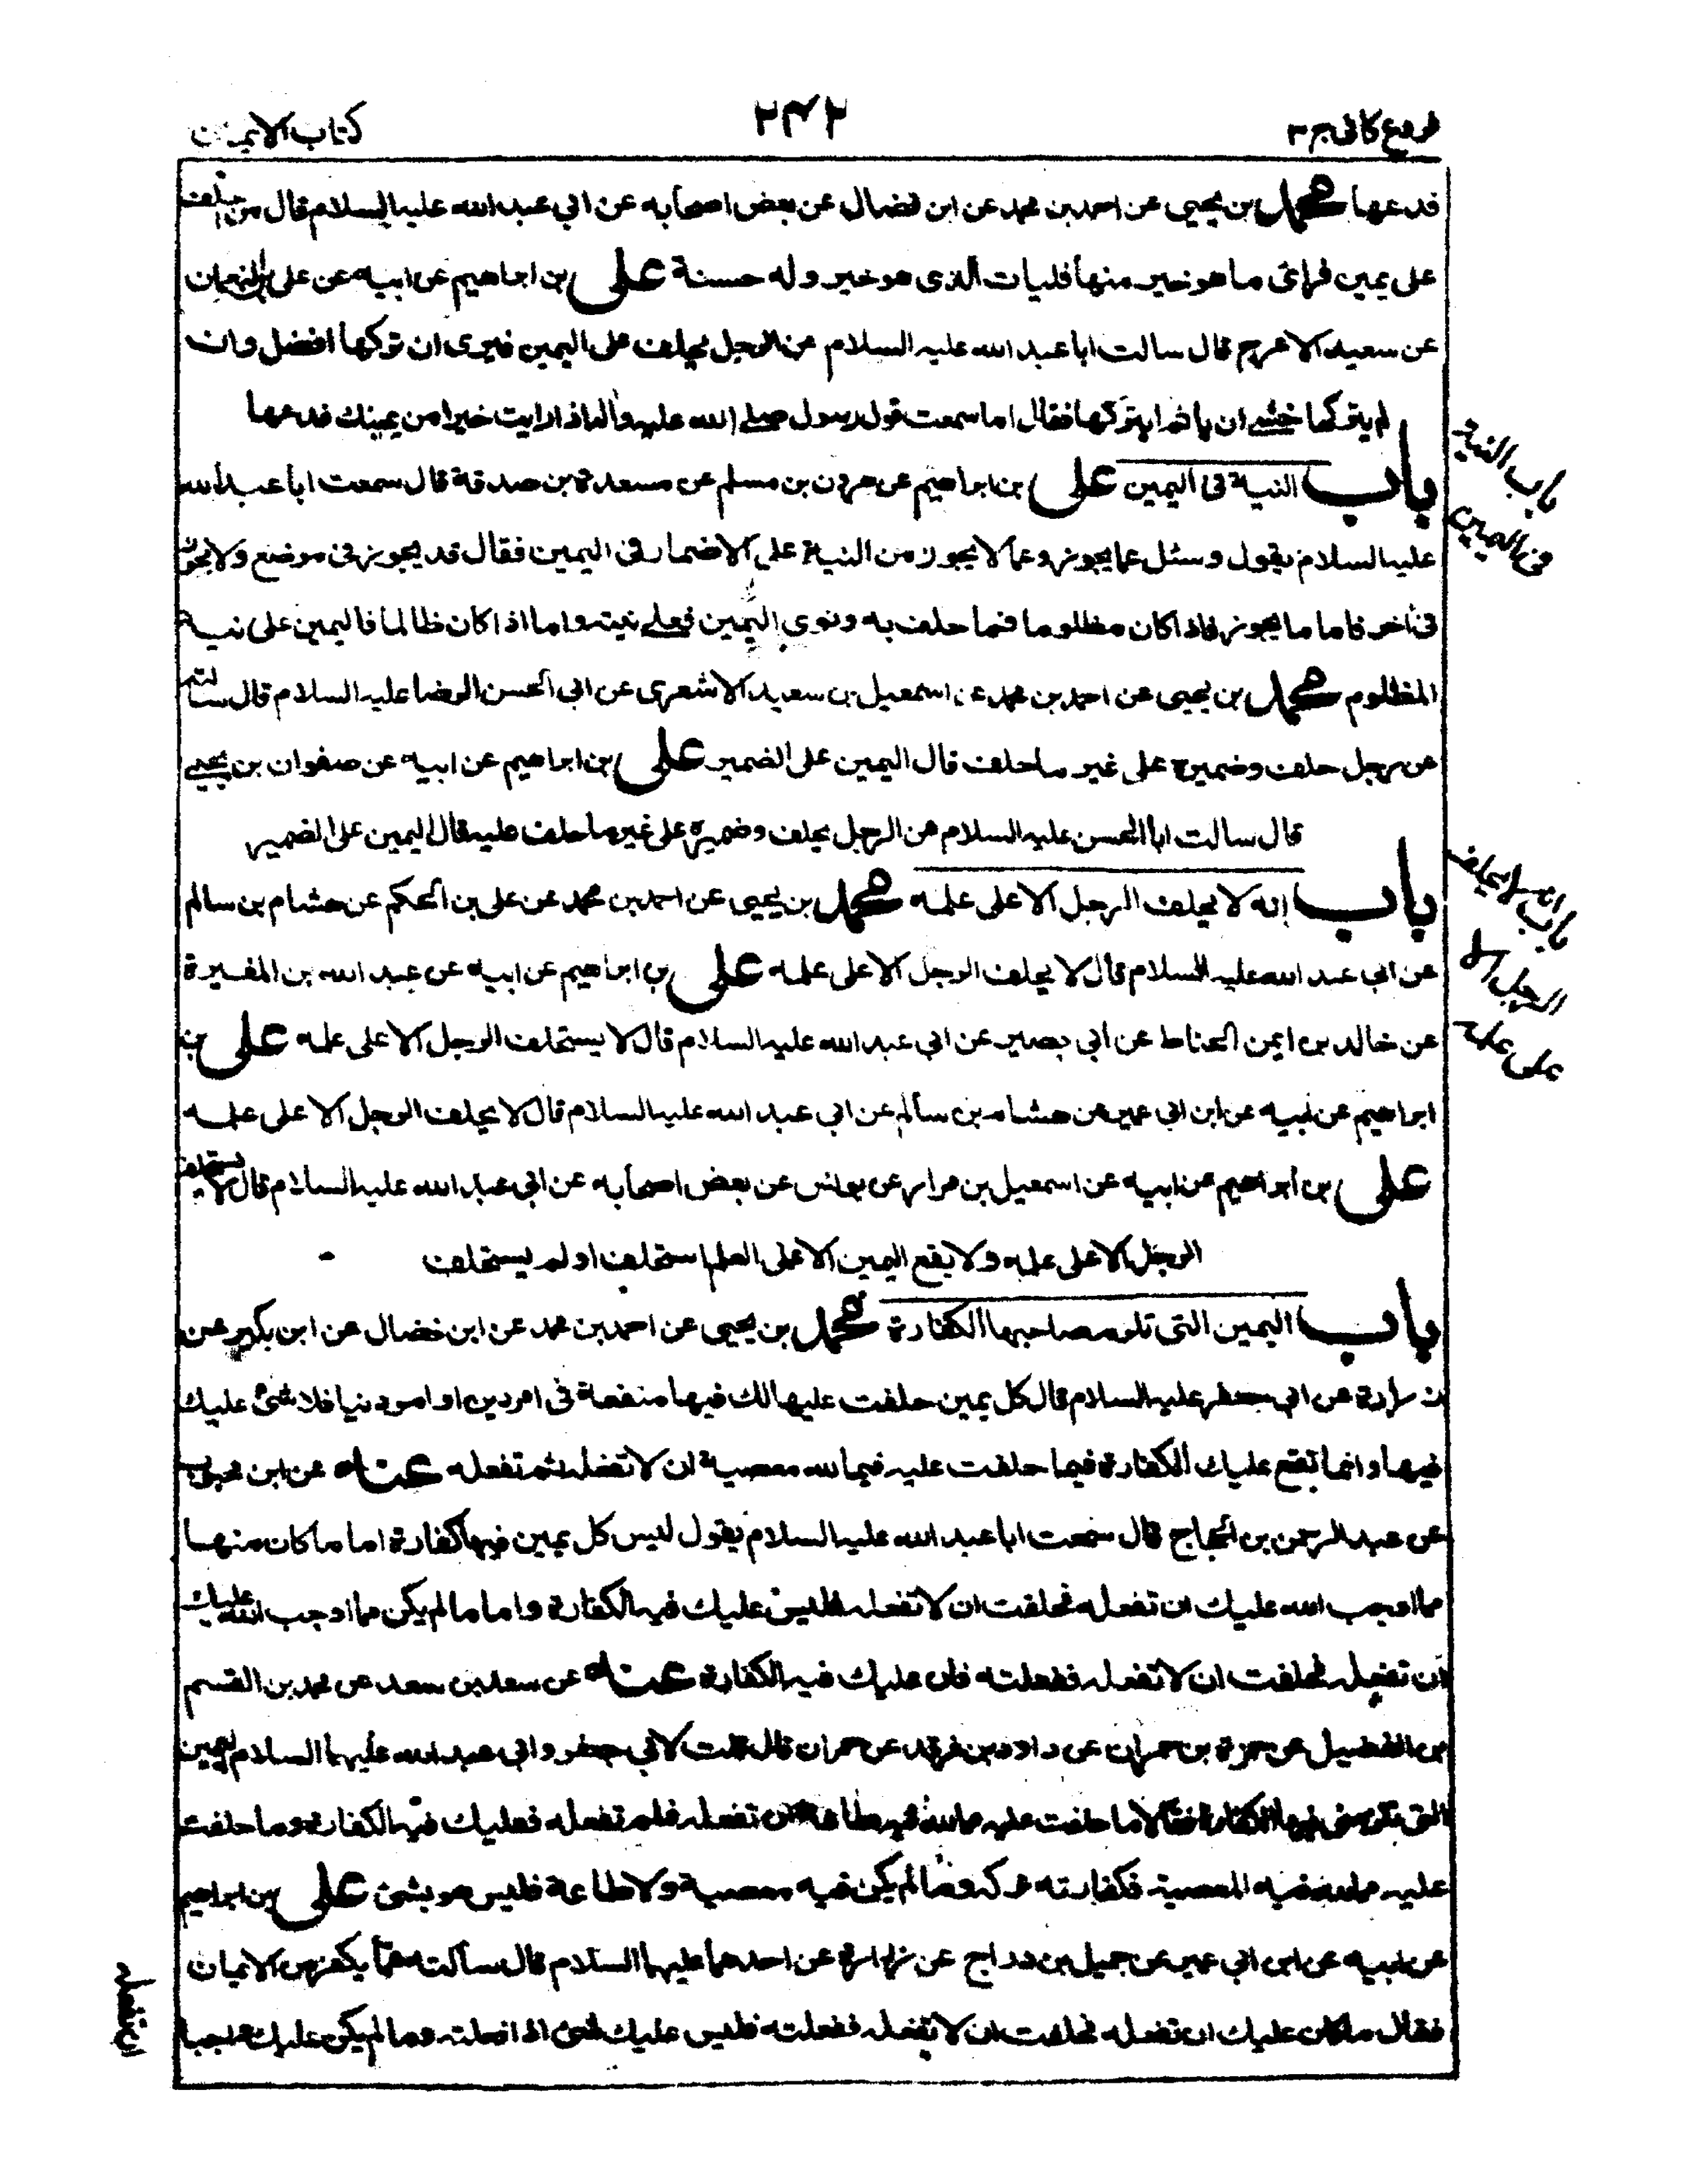 فروع كافى ج٣
٢٤٢
كتاب الايمان
فدعها محمد بن يحيى عن احمد بن محمد عن ابن فضال عن بعض اصحابه عن ابى عبد الله عليه السلام قال من حلف
على يمين فرائ ما هو خير منها فليات الذى هو خير وله حسنة على بن ابراهيم عن ابيه عن على بن النعمان
عن سعيد الاعرج قال سالت ابا عبد الله عليه السلام عن الرجل يحلف على اليمين فيرى ان تركها افضل وان
لم يتركها خشى ان ياثم ايتركها فقال اما سمعت قول رسول صلى الله عليه واله اذا رايت خيرا من يمينك فدعها
باب النية فى اليمين على بن ابراهيم عن هرون بن مسلم عن مسعدة بن صدقة قال سمعت ابا عبد الله
عليه السلام يقول وسئل عما يجوز وعما لا يجوز من النية على الاضمار فى اليمين فقال قد يجوز فى موضع ولا يجوز
فى اخر فاما ما يجوز فاذا كان مظلوما فما حلف به ونوى اليمين فعلى نيته واما اذا كان ظالما فاليمين على نية
المظلوم محمد بن يحيى عن احمد بن محمد عن اسمعيل بن سعيد الاشعرى عن ابى الحسن الرضا عليه السلام قال سالته
عن رجل حلف وضميره على غير ما حلف قال اليمين على الضمير على بن ابراهيم عن ابيه عن صفوان بن يحيى
قال سالت ابا الحسن عليه السلام عن الرجل يحلف وضميره على غير ما حلف عليه قال اليمين على الضمير
باب انه لا يحلف الرجل الا على علمه محمد بن يحيى عن احمد بن محمد عن على بن الحكم عن هشام بن سالم
عن ابى عبد الله عليه السلام قال لا يحلف الرجل الا على علمه على بن ابراهيم عن ابيه عن عبد الله بن المغيرة
عن خالد بن ايمن الحناط عن ابى بصير عن ابى عبد الله عليه السلام قال لا يستحلف الرجل الا على علمه على بن
ابراهيم عن ابيه عن ابن ابى عمير عن هشام بن سالم عن ابى عبد الله عليه السلام قال لا يحلف الرجل الا على علمه
على بن ابراهيم عن ابيه عن اسمعيل بن مرار عن يونس عن بعض اصحابه عن ابى عبد الله عليه السلام قال لا يستحلف
الرجل الا على علمه ولا يقع اليمين الا على العلم استحلف او لم يستحلف
باب اليمين التى تلزم صاحبها الكفارة محمد بن يحيى عن احمد بن محمد عن ابن فضال عن ابن بكير عن
زرارة عن ابى جعفر عليه السلام قال كل يمين حلفت عليها لك فيها منفعة فى امر دين او امر دنيا فلا شئ عليك
فيها وانما تقع عليك الكفارة فيما حلفت عليه فيما لله معصية ان لا تفعله ثم تفعله عنه عن ابن محبوب
عن عبد الرحمن بن الحجاج قال سمعت ابا عبد الله عليه السلام يقول ليس كل يمين فيها كفارة اما ما كان منها
مما اوجب الله عليك ان تفعله فحلفت ان لا تفعله فليس عليك فيه الكفارة واما ما لم يكن مما اوجب الله عليك
ان تفعله فحلفت ان لا تفعله ففعلته فان عليك فيه الكفارة عنه عن سعد بن سعد عن محمد بن القسم
بن الفضيل عن حمزة بن حمران عن داود بن فرقد عن حمران قال قلت لابى جعفر وابى عبد الله عليهما السلام اليمين
التى تلزمنى فيها الكفارة فقالا ما حلفت عليه مما لله فيه طاعة ان تفعله فلم تفعله فعليك فيه الكفارة وما حلفت
عليه مما لله فيه المعصية فكفارته تركه وما لم يكن فيه معصية ولا طاعة فليس هو بشئ على بن ابراهيم
عن ابيه عن ابن ابى عمير عن جميل بن دراج عن زرارة عن احدهما عليهما السلام قال سألته عما يكفر من الايمان
فقال ما كان عليك ان تفعله فحلفت ان لا تفعله ففعلته فليس عليك شئ اذا فعلته وما لم يكن عليك واجبا
باب النية
فى اليمين
باب انه لا يحلف
الرجل الا
على علمه
ان تفعله